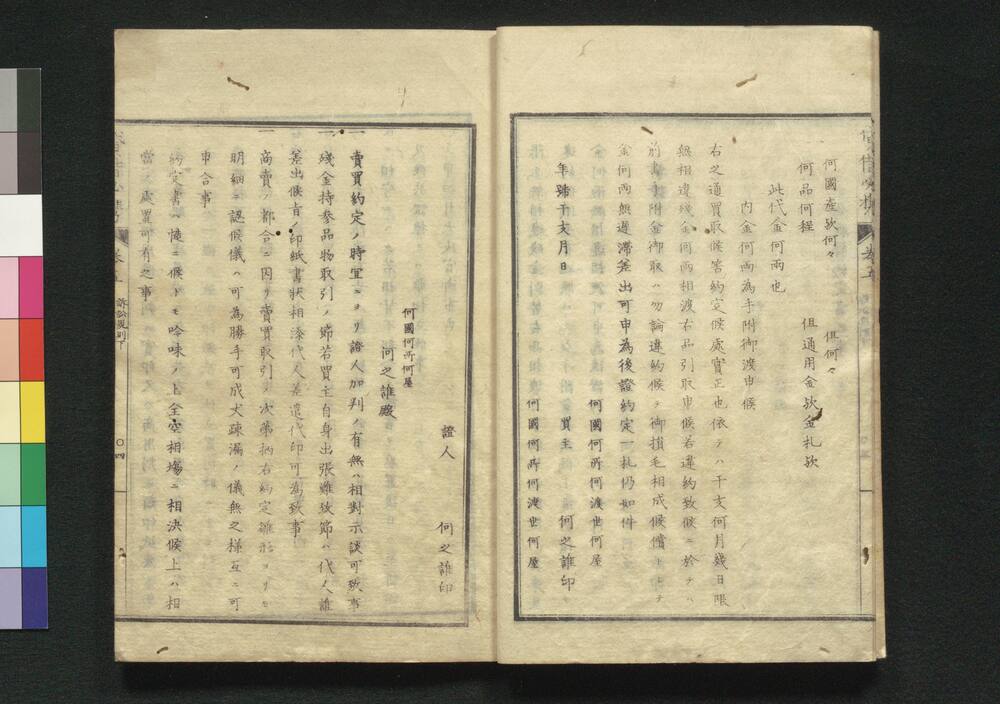 何國産欤何々　但何々
何品何程　但通用金欤金札欤
此代金何両也
内金何両為手附御渡申候
右之通買取候筈約定候處實正也依テハ干支何月幾日限
無相違残金何両相渡右品引取申候若違約致候ニ於テハ
前書手附金御取ハ勿論違約候テ御損毛相成候償トシテ
金何両無遅滞差出可申為後證約定一札仍如件
年號干支月日
何國何所何渡世何屋
買主　何之誰印
何國何所何渡世何屋
證人　何之誰印
何國何所何屋
何之誰殿
一　賣買約定ノ時宜ニヨリ證人加判ノ有無ハ相對示談可致事
一　残金持参品物取引ノ節若買主自身出張難致節ハ代人誰
差出候旨ノ印紙書状相添代人差遣代印可為致事
一　高賣ノ都合ニ因リ賣買取引ノ次第柄右約定雛形ヨリモ
明細ニ認候儀ハ可為勝手可成丈疎漏ノ儀無之様互ニ可
申合事
約定書ニ悖ニ候トモ吟味ノ上全空相場ニ相決候上ハ相
當ノ處置可有之事
巻五
訴訟規則下
〇四